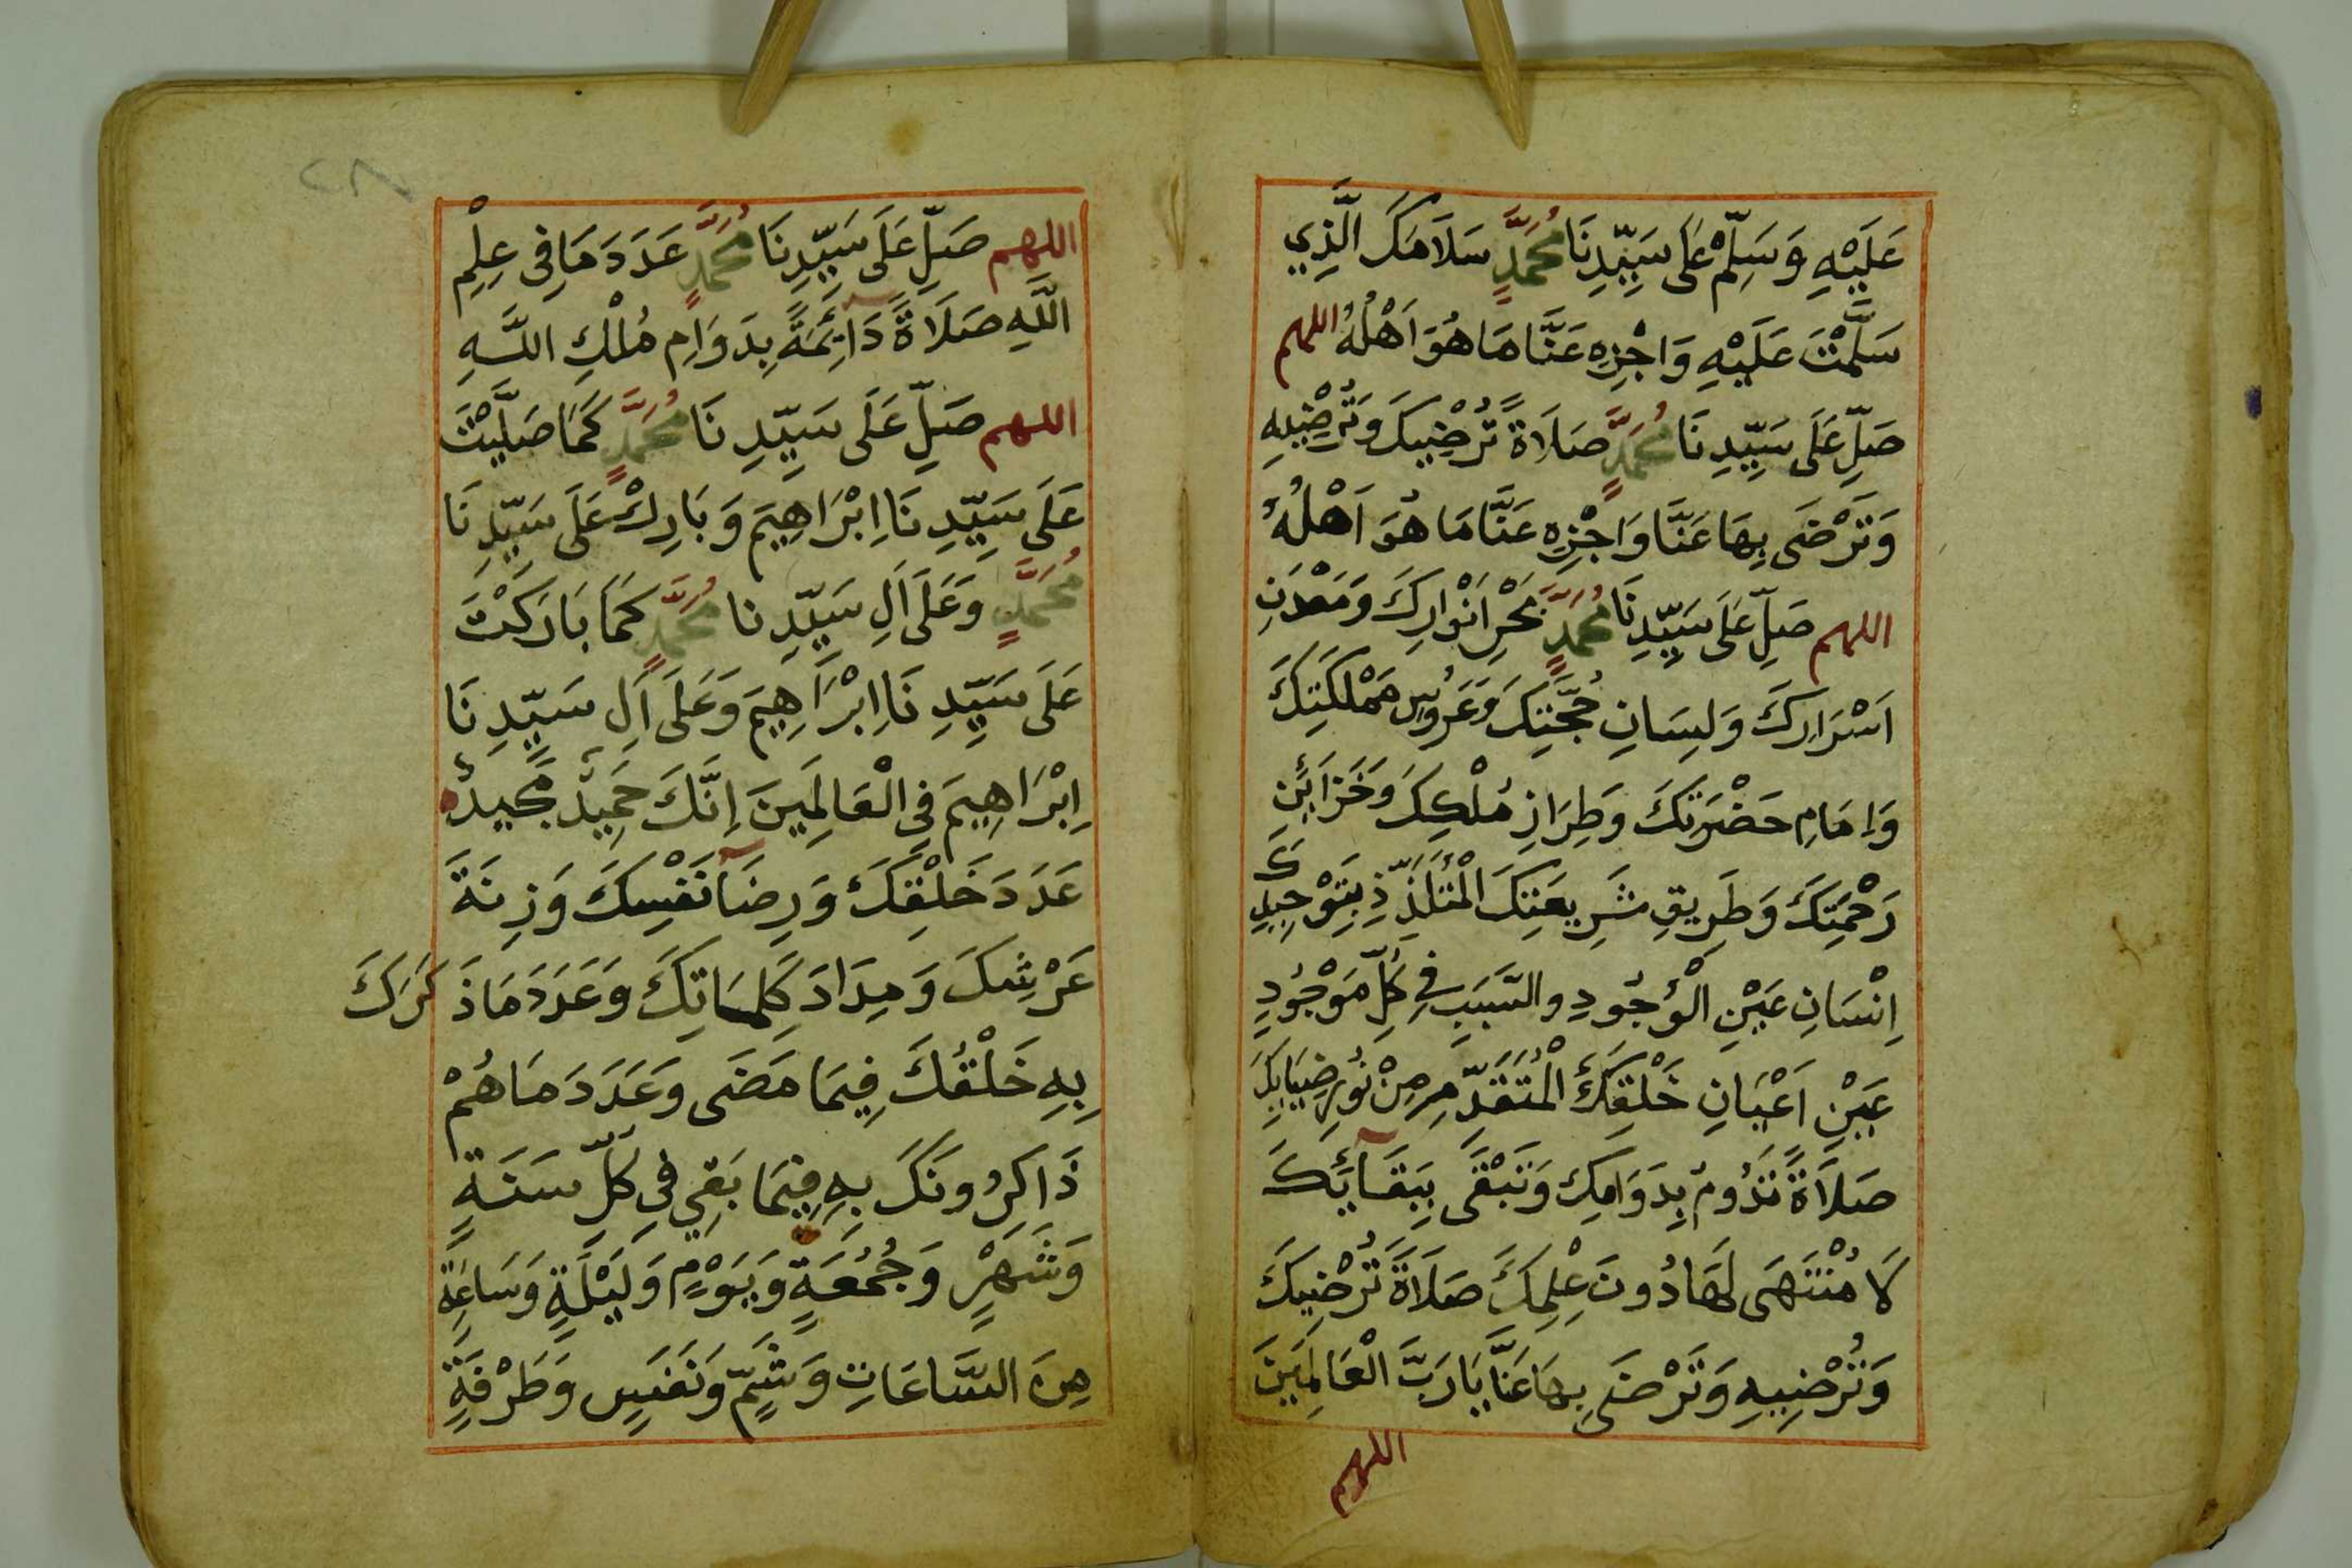 عَلَيْهِ وَسَلِّمْ عَلَى سَيِّدِنَا مُحَمَّدٍ سَلَامَكَ الَّذِي
سَلَّمْتَ عَلَيْهِ وَاجْزِهِ عَنَّا مَا هُوَ اَهْلُهُ اللهم
صَلِّ عَلَى سَيِّدِنَا مُحَمَّدٍ صَلَاةً تُرْضِيكَ وَتُرْضِيهِ
وَتَرْضَى بِهَا عَنَّا وَاجْزِهِ عَنَّا مَا هُوَ اَهْلُهُ
اللهم صَلِّ عَلَى سَيِّدِنَا مُحَمَّدٍ بَحْرِ اَنْوَارِكَ وَمَعْدَنِ
اَسْرَارِكَ وَلِسَانِ حُجَّتِكَ وَعَرُوسِ مَمْلَكَتِكَ
وَاِمَامِ حَضْرَتِكَ وَطِرَازِ مُلْكِكَ وَخَزَائِنِ
رَحْمَتِكَ وَطَرِيقِ شَرِيعَتِكَ الْمُتَلَذِّذِ بِتَوْحِيدِكَ
اِنْسَانِ عَيْنِ الْوُجُودِ والسَّبَبِ فِي كُلِّ مَوْجُودٍ
عَيْنِ اَعْيَانِ خَلْقِكَ الْمُتَقَدِّمِ مِنْ نُورِ ضِيَايِكَ
صَلَاةً تَدُومُ بِدَوَامِكَ وَتَبْقَى بِبَقَآئِكَ
لَا مُنْتَهَى لَهَا دُونَ عِلْمِكَ صَلَاةً تُرْضِيكَ
وَتُرْضِيهِ وَتَرْضَى بِهَا عَنَّا يَا رَبَّ الْعَالَمِينَ
اللهم
٢٨
اللهم صَلِّ عَلَى سَيِّدِنَا مُحَمَّدٍ عَدَدَ مَا فِى عِلْمِ
اللَّهِ صَلَاةً دَآئِمَةً بِدَوَامِ مُلْكِ اللَّهِ
اللهم صَلِّ عَلَى سَيِّدِنَا مُحَمَّدٍ كَمَا صَلَّيْتَ
عَلَى سَيِّدِنَا اِبْرَاهِيمَ وَبَارِكْ عَلَى سَيِّدِنَا
مُحَمَّدٍ وَعَلَى اَلِ سَيِّدِنا مُحَمَّدٍ كَمَا بَارَكْتَ
عَلَى سَيِّدِنَا اِبْرَاهِيمَ وَعَلَى اَلِ سَيِّدِنَا
اِبْرَاهِيمَ فِي الْعَالَمِينَ اِنَّكَ حَمِيدٌ مَجِيدٌ
عَدَدَ خَلْقِكَ وَرِضَآ نَفْسِكَ وَزِنَةَ
عَرْشِكَ وَمِدَادَ كَلِمَاتِكَ وَعَدَدَ مَا ذَكَرَكَ
بِهِ خَلْقُكَ فِيمَا مَضَى وَعَدَدَ مَا هُمْ
ذَاكِرُونَكَ بِهِ فِيمَا بَقِي فِي كُلِّ سَنَةٍ
وَشَهْرٍ وَجُمُعَةٍ وَيَوْمٍ وَلَيْلَةٍ وَسَاعَةٍ
مِنَ السَّاعَاتِ وَشَمٍّ وَنَفَسٍ وَطَرْفَةٍ